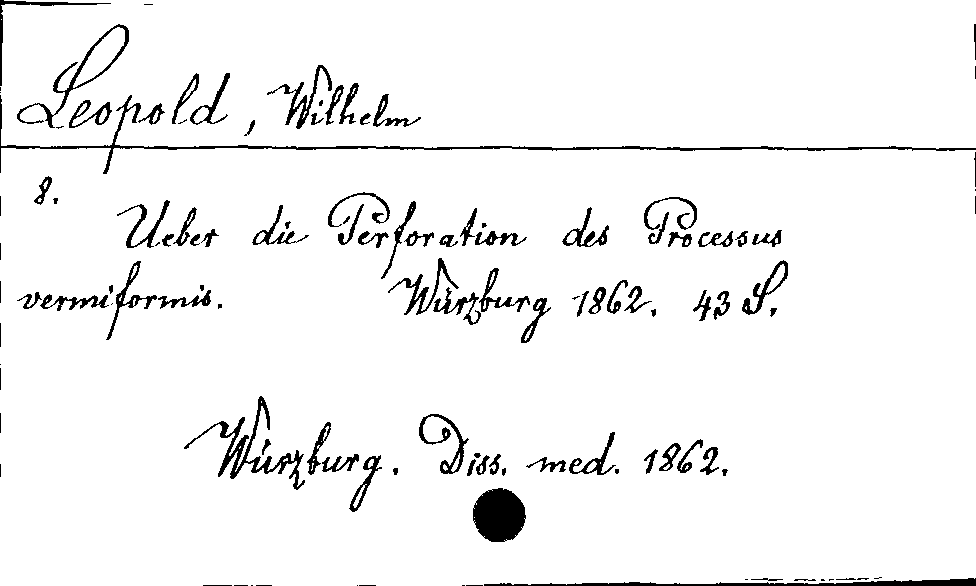 Leopold, Wilhelm
8.
Ueber die Perforation des Processus
vermiformis. Würzburg 1862. 43 S.
Würzburg. Diss. med. 1862.